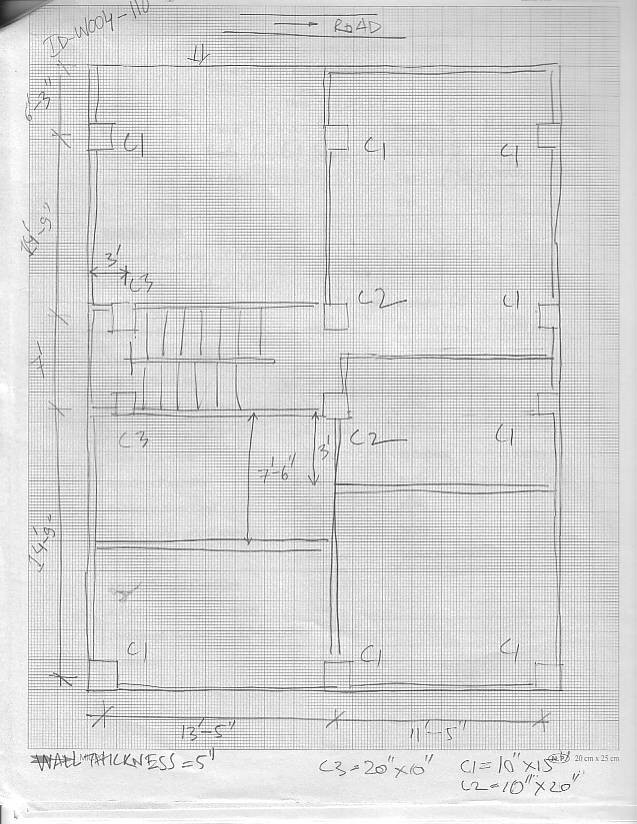 ID-W004-110
ROAD
6'-3"
C1
C1
C1
14'-9"
3'
C3
C2
C1
7'
C3
C2
C1
7'-6"
3'
14'-9"
C1
C1
C1
13'-5"
11'-5"
WALL THICKNESS = 5"
C3=20"x10"
C1=10"x15"
20 cm x 25 cm
C2=10"x20"